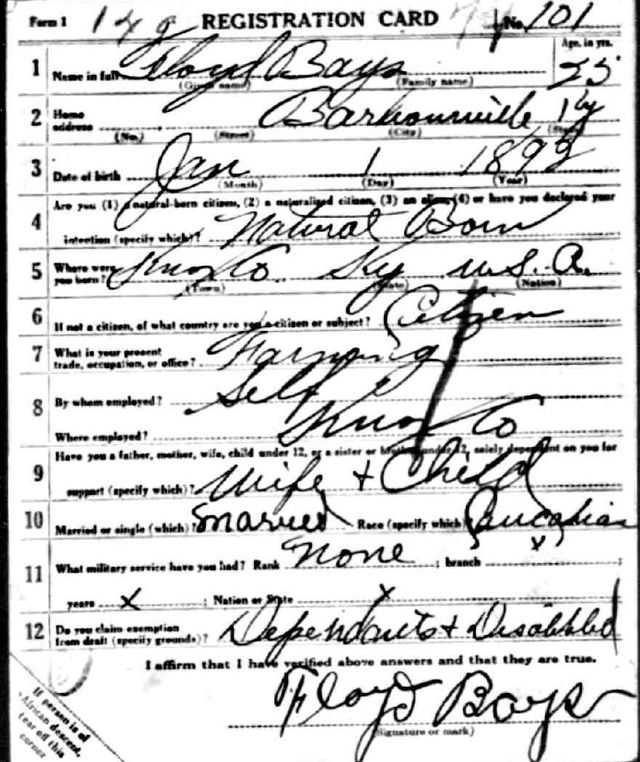 Form 1 REGISTRATION CARD No. 101
1 Name in full Floyd Bays Age, in yrs. 25
(Given name) (Family name)
2 Home address Barbourville Ky
(No.) (Street) (City) (State)
3 Date of birth Jan 1 1892
(Month) (Day) (Year)
4 Are you (1) a natural-born citizen, (2) a naturalized citizen, (3) an alien, (4) or have you declared your
intention (specify which)? Natural Born
5 Where were you born? Knox Co. Ky U.S.A.
(Town) (State) (Nation)
6 If not a citizen, of what country are you a citizen or subject? Citizen
7 What is your present trade, occupation, or office? Farming
8 By whom employed? Self
Where employed? Knox Co
9 Have you a father, mother, wife, child under 12, or a sister or brother under 12, solely dependent on you for
support (specify which)? Wife + Child
10 Married or single (which)? Married Race (specify which) Caucasian
11 What military service have you had? Rank None ; branch x ;
years x ; Nation or State x
12 Do you claim exemption from draft (specify grounds)? Dependants + Disabled
I affirm that I have verified above answers and that they are true.
Floyd Bays
(Signature or mark)
If person is of
African descent,
tear off this
corner